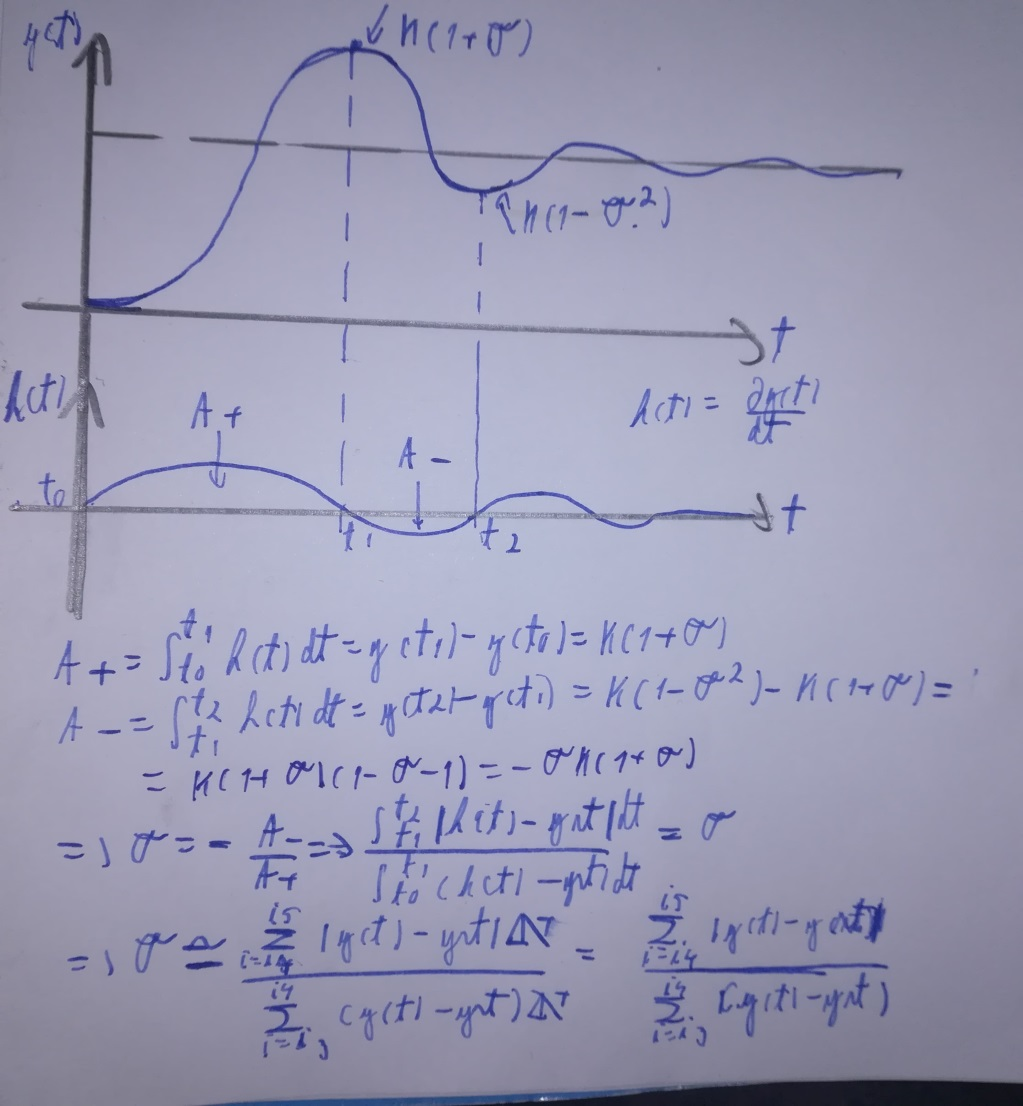 y(t)
K(1+σ)
K(1-σ²)
t
h(t)
A+
A-
h(t) = ∂y(t)/dt
t₀
t₁
t₂
t
A+ = ∫_{t₀}^{t₁} h(t) dt = y(t₁) - y(t₀) = K(1+σ)
A- = ∫_{t₁}^{t₂} h(t) dt = y(t₂) - y(t₁) = K(1-σ²) - K(1+σ) =
= K(1+σ)(1-σ-1) = -σK(1+σ)
=> σ = - A-/A+ => ∫_{t₁}^{t₂} |h(t) - yst| dt / ∫_{t₀}^{t₁} (h(t) - yst) dt = σ
=> σ ≃ Σ_{i=i4}^{i5} |y(t) - yst| ΔT / Σ_{i=i3}^{i4} (y(t) - yst) ΔT = Σ_{i=i4}^{i5} |y(t) - yst| / Σ_{i=i3}^{i4} (y(t) - yst)